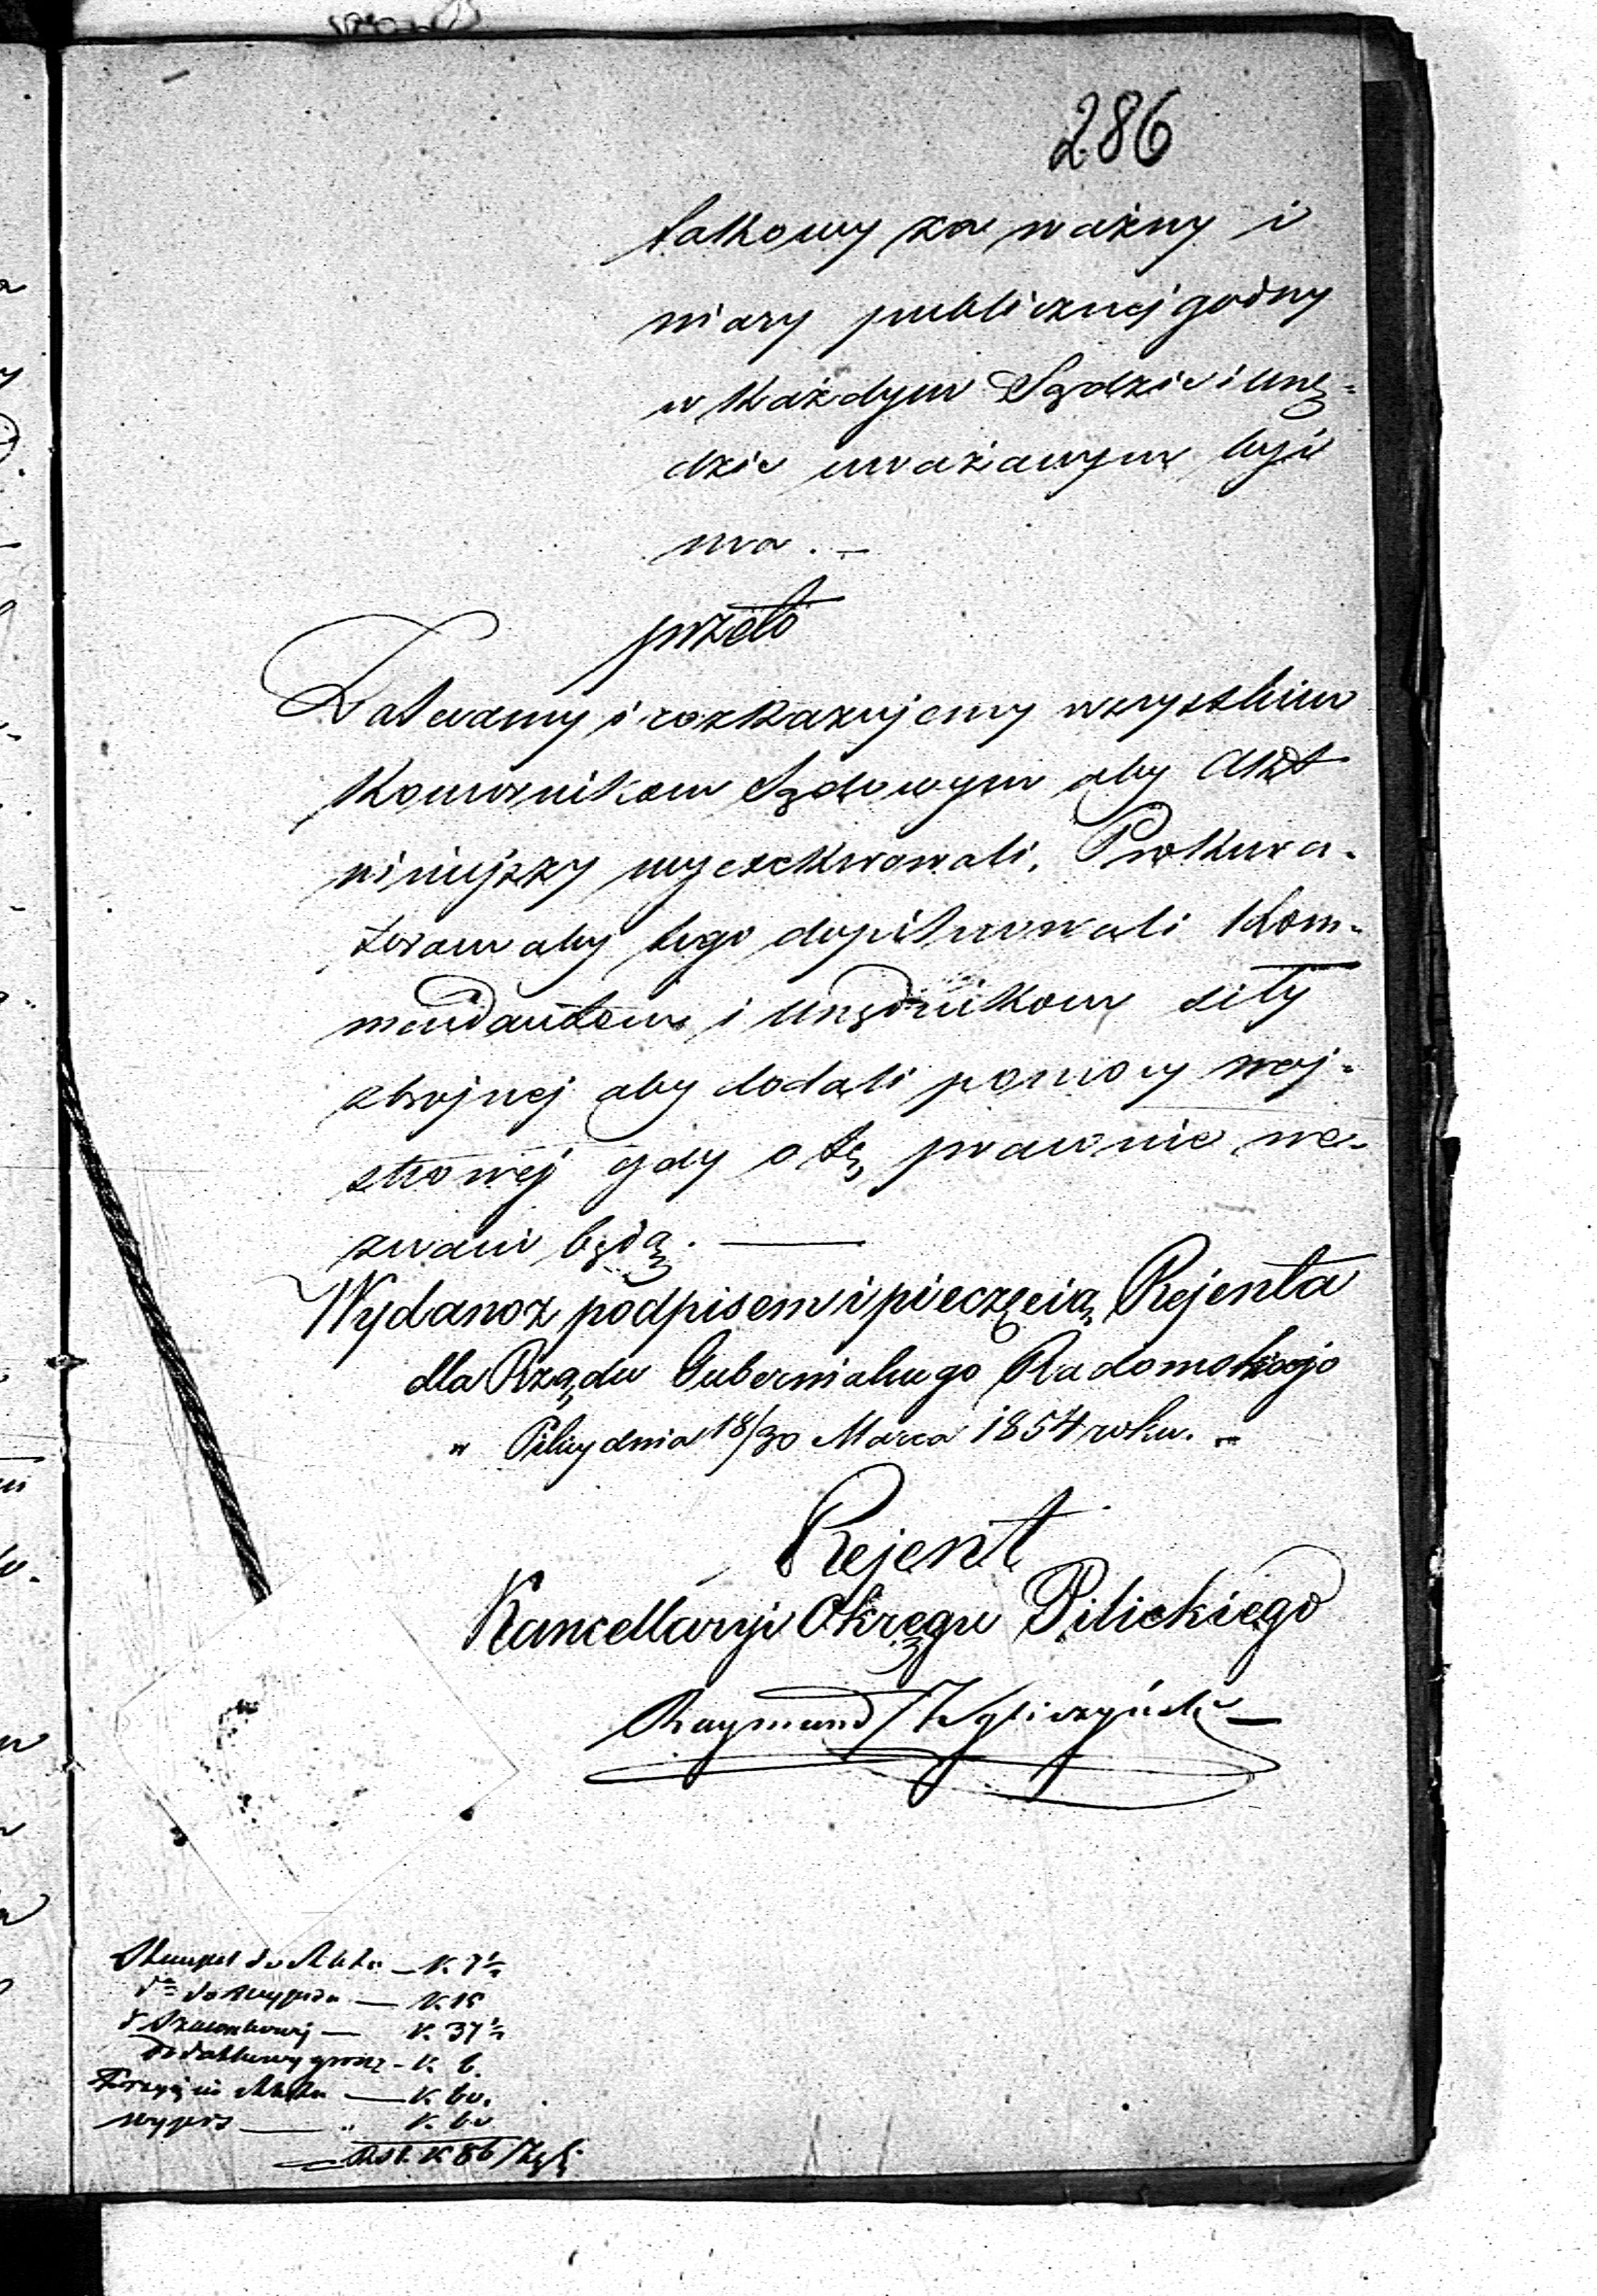 286
takowy za ważny i
wiary publicznej godny
w każdym Sądzie i urzę-
dzie uważanym być
ma. —
przeto
Zalecamy i rozkazujemy wszystkim
Komornikom Sądowym aby Akt
niniejszy wyexekwowali, Prokura-
torom aby tego dopilnowali Kom-
mendantom i urzędnikom siły
zbrojnej aby dodali pomocy woj-
skowej gdy o tę prawnie we-
zwani będą. —
Wydano z podpisem i pieczęcią Rejenta
dla Rządu Gubernialnego Radomskiego
" Pilicy dnia 18/30 Marca 1854 roku. "
Rejent
Kancellaryi Okręgu Pilickiego
Raymund
Stempel do Aktu — K. 7½
do wypisu — K 15
Szacunkowy — K. 37½
dodatkowy grosz - K. 6.
Aktu — K. 60.
wypis — " K. 60
Rs 1. K 86